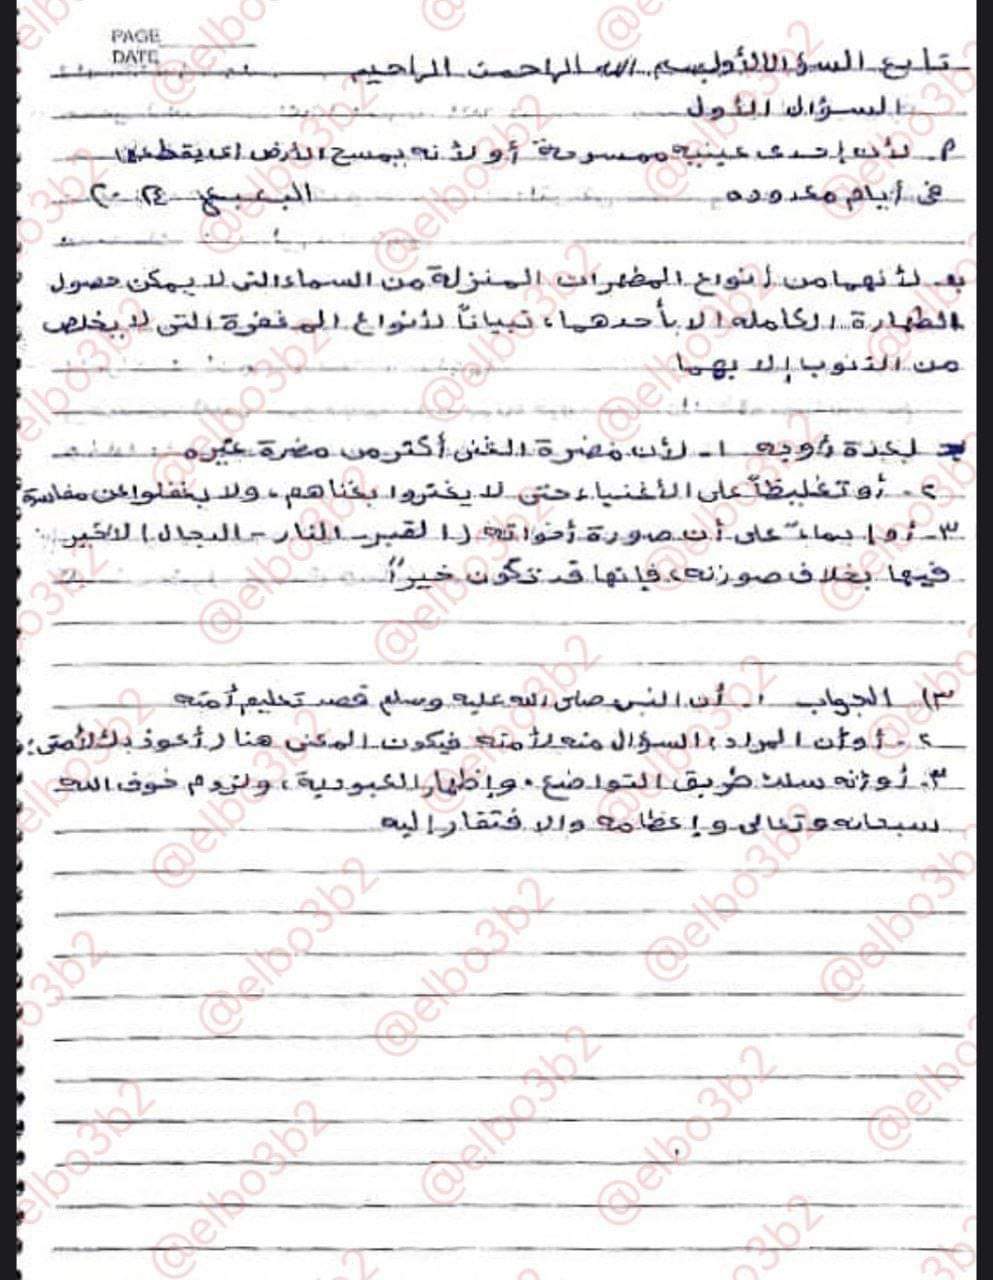 PAGE
DATE
تابع السؤال الأول بسم الله الراحمن الراحيم
السؤال الأول
م. لأن إحدى عينيه ممسوحة أو لأنه يمسح الأرض أى يقطعها
فى أيام معدوده البعبع ٢٠٢٤
ب. لأنهما من أنواع المطهرات المنزلة من السماء التى لا يمكن حصول
الطهارة الكامله إلا بأحدهما، تبياناً لأنواع المغفرة التى لا يخلص
من الذنوب إلا بهما
ج لعدة أوجه ١- لأن مضرة الغنى أكثر من مضرة غيره
٢- أو تغليظاً على الأغنياء حتى لا يغتروا بغناهم، ولا يغفلوا عن مفاسده
٣- أو إيماءً على أن صورة أخواته (القبر - النار - الدجال) لا خير
فيها بخلاف صورته، فإنها قد تكون خيراً
٣) الجواب ١. أن النبى صلى الله عليه وسلم قصد تعليم أمته
٢- أو أن المراد، السؤال منه لأمته فيكون المعنى هنا (أعوذ بك لأمتى)
٣. أو أنه سلك طريق التواضع، وإظهار العبودية، ولزوم خوف الله
سبحانه وتعالى وإعظامه والافتقار إليه
@elbo3b2